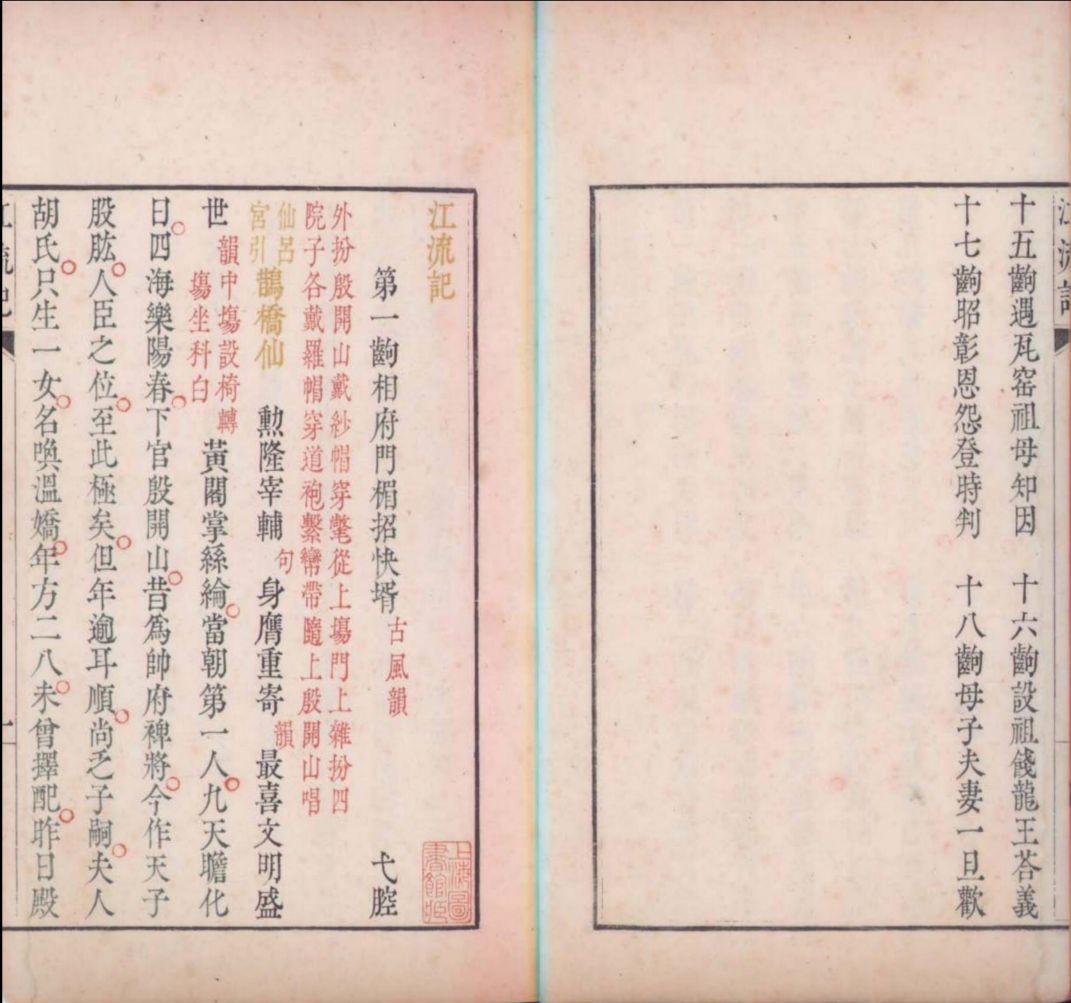 江流記
十五齣遇瓦窑祖母知因　十六齣設祖餞龍王荅義
十七齣昭彰恩怨登時判　十八齣母子夫妻一旦歡
江流記
第一齣相府門楣招快壻 古風韻　弋腔
外扮殷開山戴紗帽穿氅從上塲門上雜扮四
院子各戴羅帽穿道袍繫帶隨上殷開山唱
仙呂
宮引
鵲橋仙　勲隆宰輔 句 身膺重寄 韻 最喜文明盛
世
韻中塲設椅轉
塲坐科白
黃閣掌絲綸當朝第一人九天瞻化
日四海樂陽春下官殷開山昔爲帥府裨將今作天子
股肱人臣之位至此極矣但年逾耳順尚乏子嗣夫人
胡氏只生一女名喚溫嬌年方二八未曾擇配昨日殿
江流記
上海圖
書館藏